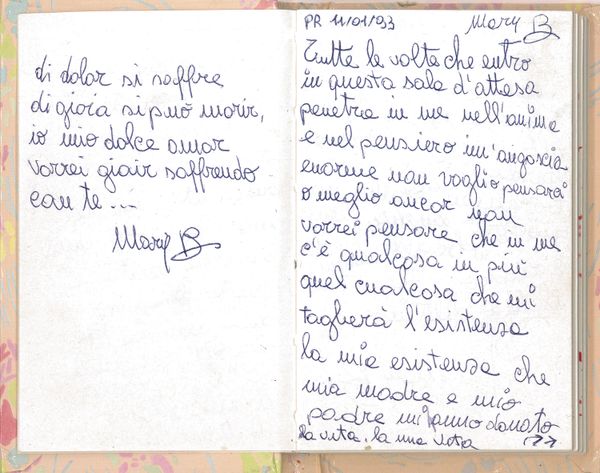 di dolor si soffre
di gioia si può morir,
io mio dolce amor
vorrei gioir soffrendo
con te...
Mary B
PR 11/01/93 Mary B
Tutte le volte che entro
in questa sala d'attesa
penetra in me nell'anima
e nel pensiero un'angoscia
enorme non voglio pensarci
o meglio ancor non
vorrei pensare che in me
c'è qualcosa in più
quel cualcosa che mi
taglierà l'esistenza
la mia esistenza che
mia madre e mio
padre mi anno donato
la vita, la mia vita